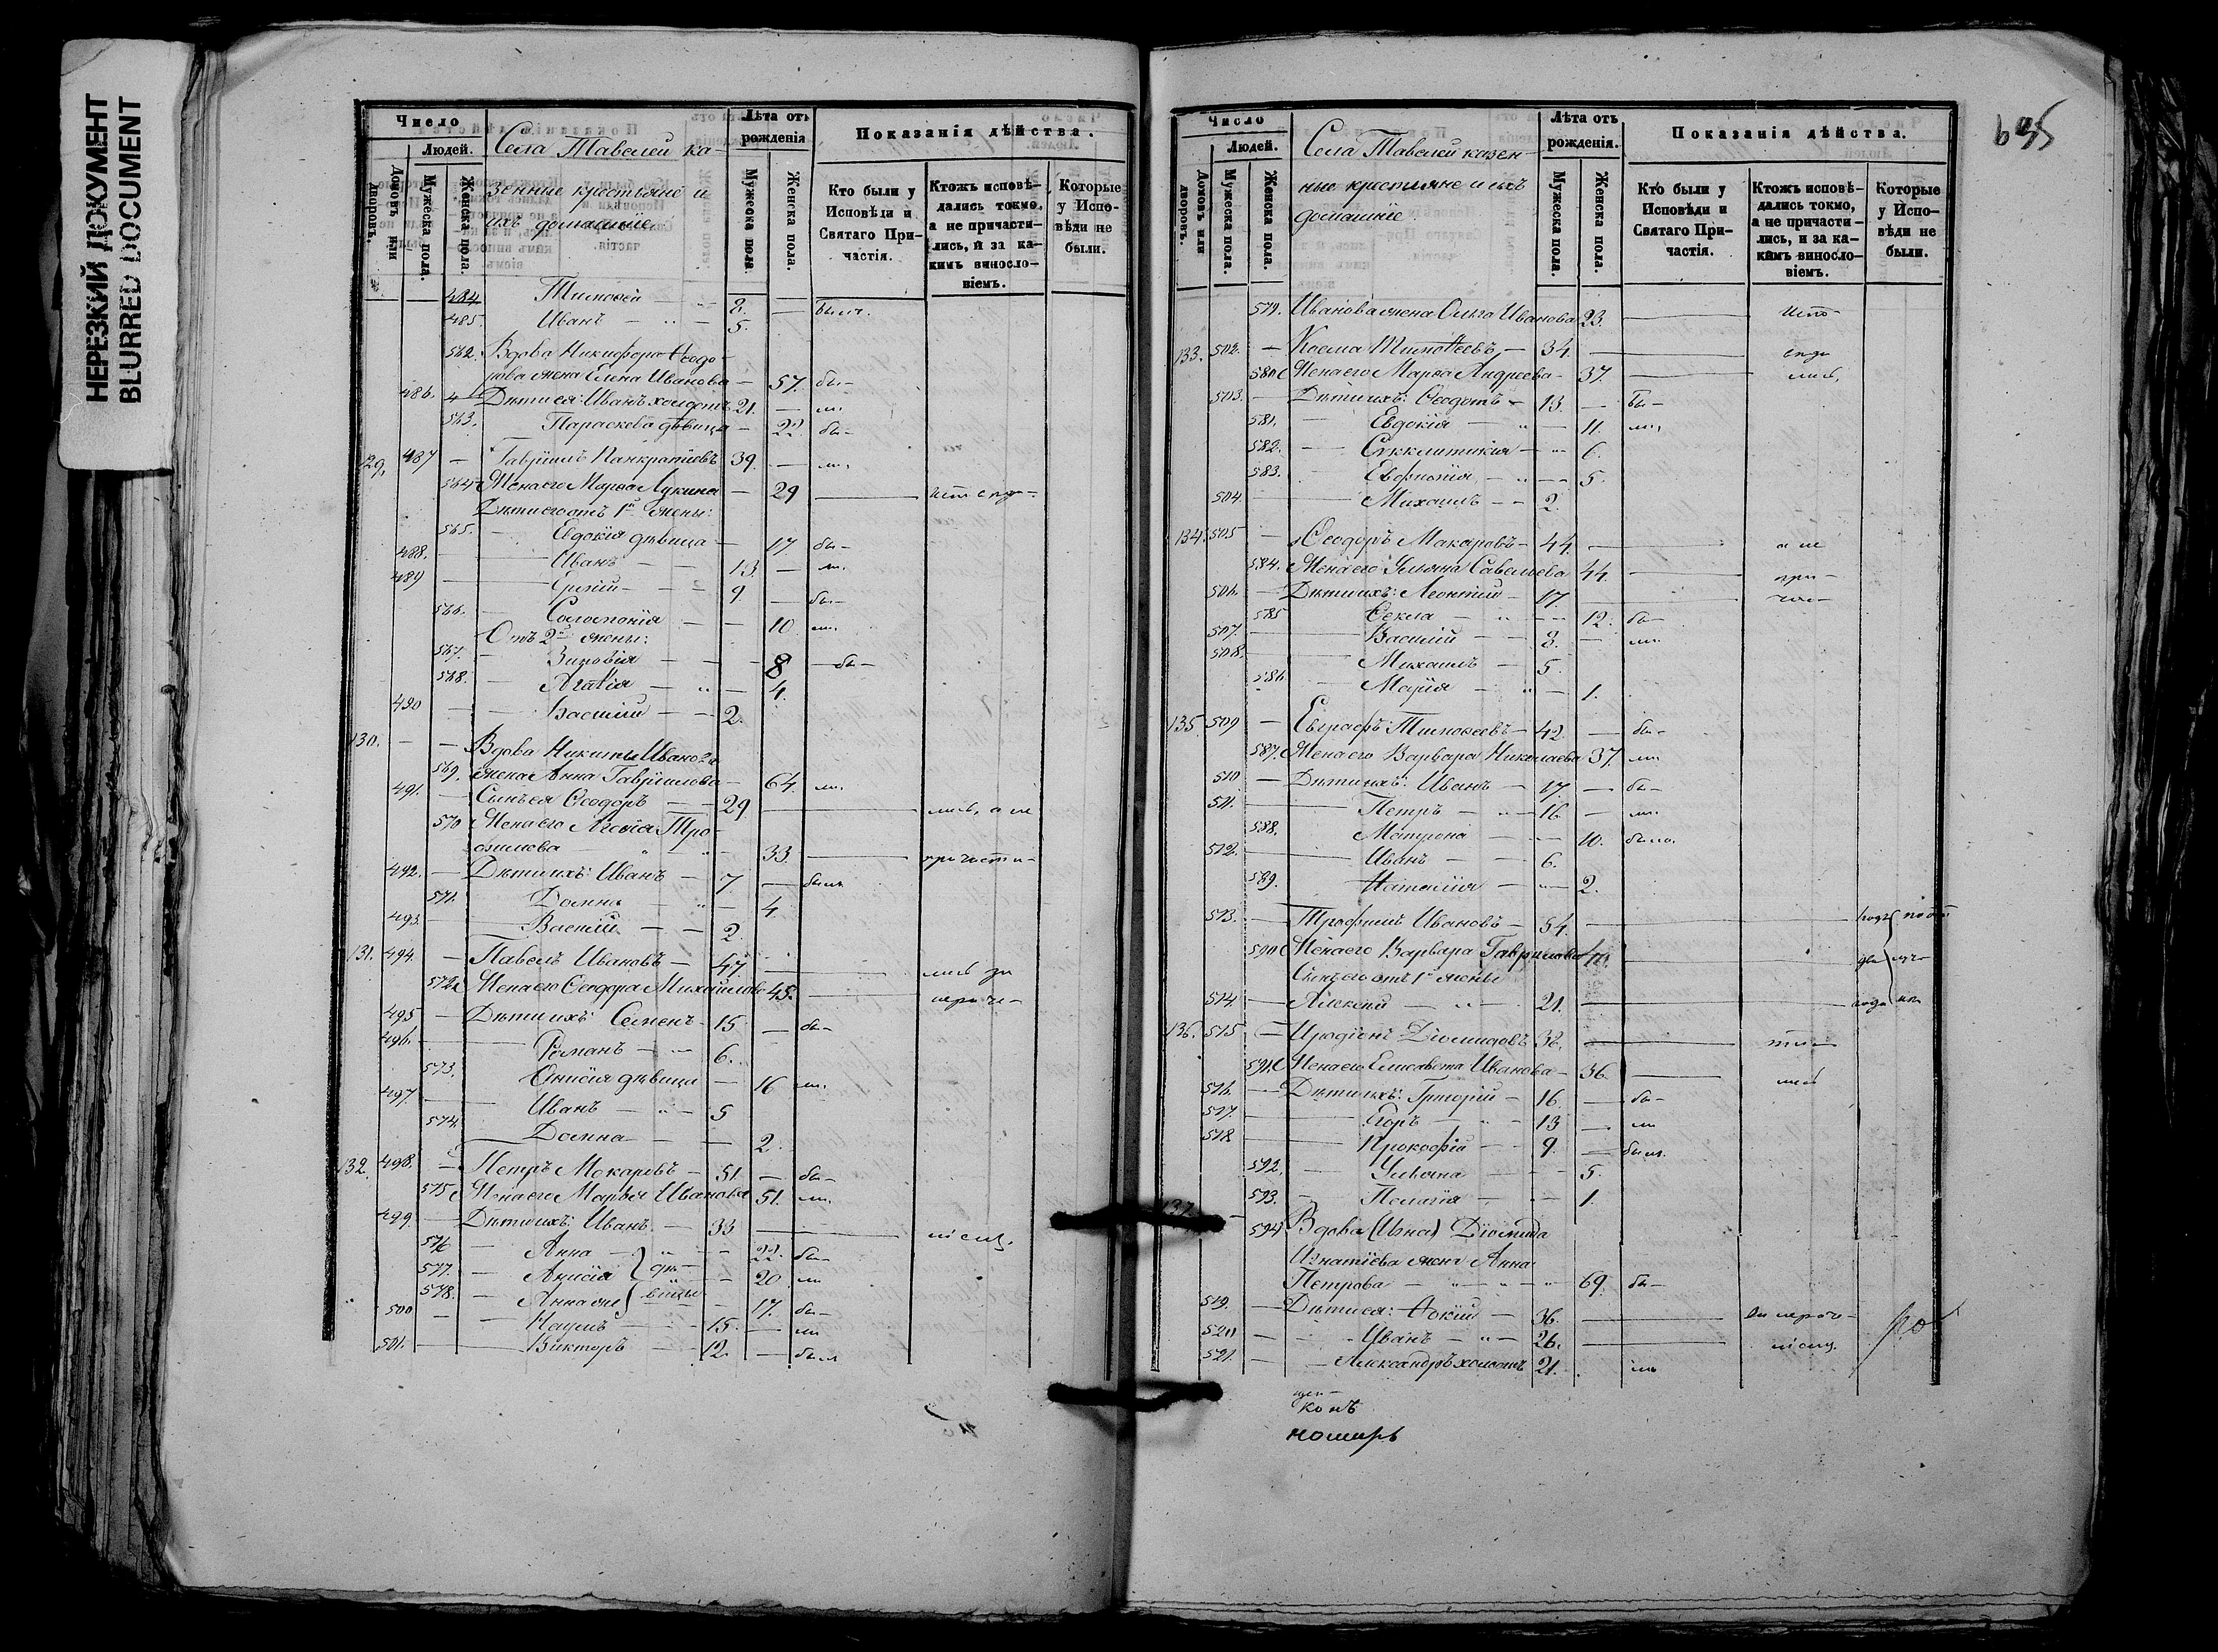 НЕРЕЗКИЙ ДОКУМЕНТ
BLURRED DOCUMENT
Число
Людей.
Домовъ или дворовъ.
Мужеска пола.
Женска пола.
Села Тавелей ка-
зенные крестьяне и
ихъ домашніе.
Лѣта отъ рожденія
Мужеска пола.
Женска пола.
Показанія дѣйства.
Кто были у Исповѣди и Святаго Причастія.
Ктожъ исповѣдались токмо, а не причастились, и за какимъ винословіемъ.
Которые у Исповѣди не были.
484 Тимофей 8. были.
485. Иванъ 5.
562. Вдова Никифора Ѳеодо-
рова жена Елена Иванова 57. бы-
486. Дѣти ея: Иванъ холостъ 21. ли.
563. Параскева дѣвица 22. бы-
129. 487 Гавріилъ Панкратіевъ 39. ли,
564 Жена его Марѳа Лукина 29
Дѣти его отъ 1й жены:
565. Евдокія дѣвица 17. бы-
488. Иванъ 13. ли.
489 9. бы-
566. Соломонія 10 ли.
Отъ 2й жены:
567. Зиновія 8 бы-
568. Агаѳія 4.
490 Василій 2.
130. Вдова Никиты Иванова
569. жена Анна Гавріилова 64. ли.
491. Сынъ ея Ѳеодоръ 29 лись, а не
570 Жена его Агаѳія Тро-
фимова 33. причасти-
492. Дѣти ихъ: Иванъ 7. были
571. Домна 4.
493. Василій 2.
131. 494. Павелъ Ивановъ 47. лись за
572 Жена его Ѳеодора Михайлова 45.
495 Дѣти ихъ: Семенъ 15 бы-
496. Романъ 6.
573. Онисія дѣвица 16 ли.
497. Иванъ 5
574. Домна 2.
132. 498. Петръ Макаровъ 51. бы-
575. Жена его Марья Иванова 51. ли.
499. Дѣти ихъ: Иванъ 33
576 Анна 22. бы-
577. Анисія дѣ- 20. ли
578. Анна же вицы 17. бы-
500 Наумъ 15. ли
501. Викторъ 12. были
645
Число
Людей.
Домовъ или дворовъ.
Мужеска пола.
Женска пола.
Села Тавелей казен-
ные крестьяне и ихъ
домашніе.
Лѣта отъ рожденія.
Мужеска пола.
Женска пола.
Показанія дѣйства.
Кто были у Исповѣди и Святаго Причастія.
Ктожъ исповѣдались токмо, а не причастились, и за какимъ винословіемъ.
Которые у Исповѣди не были.
579. Иванова жена Ольга Иванова 23. Испо-
133. 502. Косма Тимоѳеевъ 34.
580 Жена его Марѳа Андреева 37. лись,
503. Дѣти ихъ: Ѳеодотъ 13. Бы-
581. Евдокія 11. ли,
582. Сугклитикія 6.
583. Евфимія 5.
504. Михаилъ 2.
134. 505 Ѳеодоръ Макаровъ 44. а не
584. Жена его Ульяна Савельева 44. при-
506. Дѣти ихъ: Леонтій 17. час-
585 Ѳекла 12. бы-
507. Василій 8. ли.
508. Михаилъ 5.
586. Марія 1.
135. 509 Евграфъ Тимоѳеевъ 42 бы-
587. Жена его Варвара Николаева 37. ли.
510 Дѣти ихъ: Иванъ 17. бы-
511. Петръ 16 ли.
588. Матрона 10. была.
512. Иванъ 6.
589. Наталія 2.
513. Трофимъ Ивановъ 54.
590 Жена его Варвара Гавріилова 40.
Сынъ его отъ 1й жены
514. Алексѣй 21.
136. 515 Иродіонъ Діомидовъ 38. ти-
591. Жена его Елисавета Иванова 36 лись
516. Дѣти ихъ: Григорій 16 бы-
517. Егоръ 13 ли
518 Прокофій 9. были.
592. Ульяна 5.
593. Пелагія 1.
137 594 Вдова Діомида
Игнатіева жена Анна
Петрова 69. бы-
519. Дѣти ея: 36.
520 Иванъ 26.
521. Александръ холостъ 21. ли